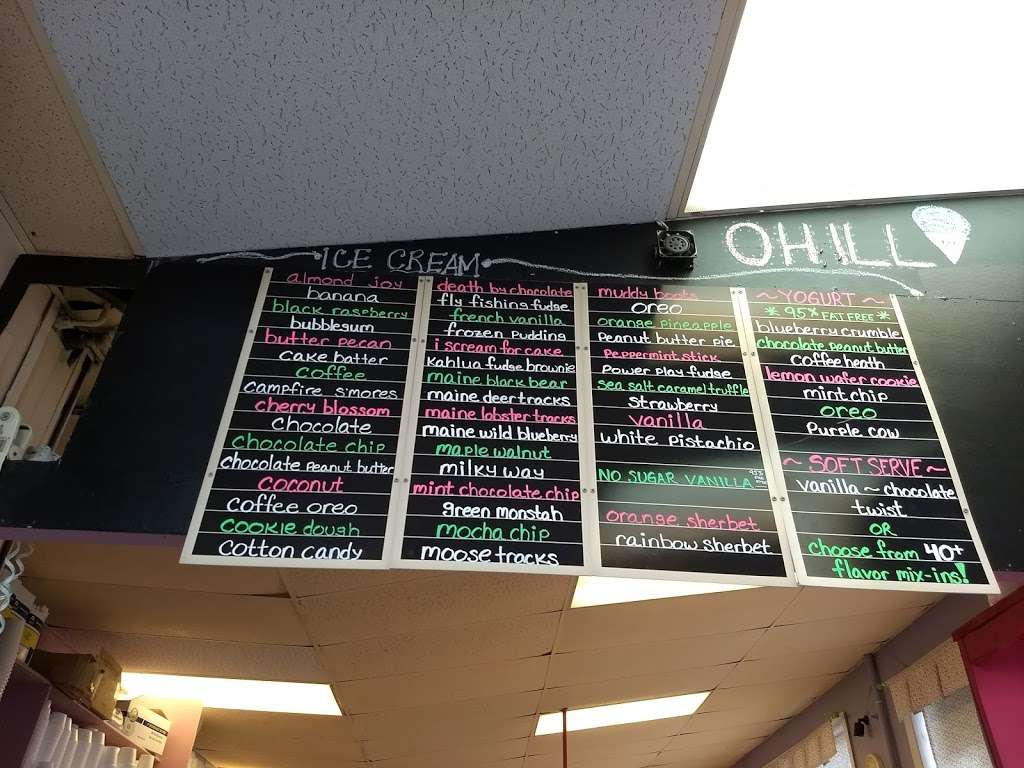 ICE CREAM
OHILL
almond joy
banana
black raspberry
bubblegum
butter pecan
cake batter
coffee
campfire s'mores
cherry blossom
chocolate
chocolate chip
chocolate peanut butter
coconut
coffee oreo
cookie dough
cotton candy
death by chocolate
fly fishing fudge
french vanilla
frozen pudding
i scream for cake
kahlua fudge brownie
maine black bear
maine deer tracks
maine lobster tracks
maine wild blueberry
maple walnut
milky way
mint chocolate chip
green monstah
mocha chip
moose tracks
muddy boots
oreo
orange pineapple
peanut butter pie
peppermint stick
power play fudge
sea salt caramel truffle
strawberry
vanilla
white pistachio
NO SUGAR VANILLA
orange sherbet
rainbow sherbet
~ YOGURT ~
* 95% FAT FREE *
blueberry crumble
chocolate peanut butter
coffee heath
lemon wafer cookie
mint chip
oreo
purple cow
~ SOFT SERVE ~
vanilla ~ chocolate
twist
OR
choose from 40+
flavor mix-ins!